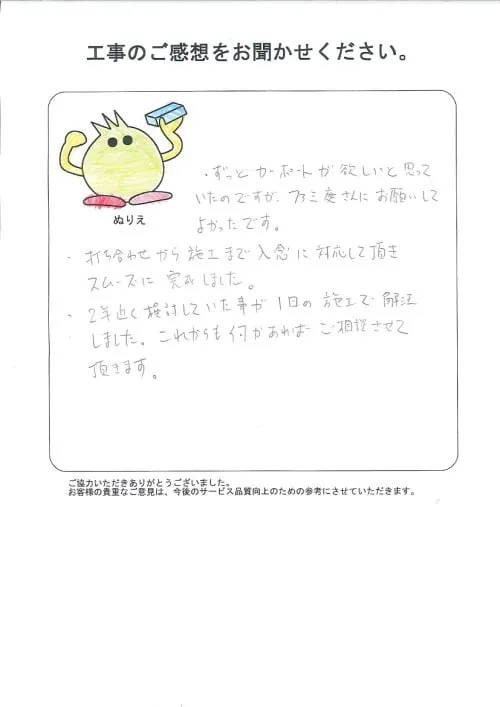 工事のご感想をお聞かせください。
ぬりえ
・ずっとカーポートが欲しいと思って
いたのですが、ファミ庭さんにお願いして
よかったです。
・打ち合わせから施工まで入念に対応して頂き
スムーズに完成しました。
・2年近く検討していた事が1日の施工で解決
しました。これからも何かあればご相談させて
頂きます。
ご協力いただきありがとうございました。
お客様の貴重なご意見は、今後のサービス品質向上のための参考にさせていただきます。